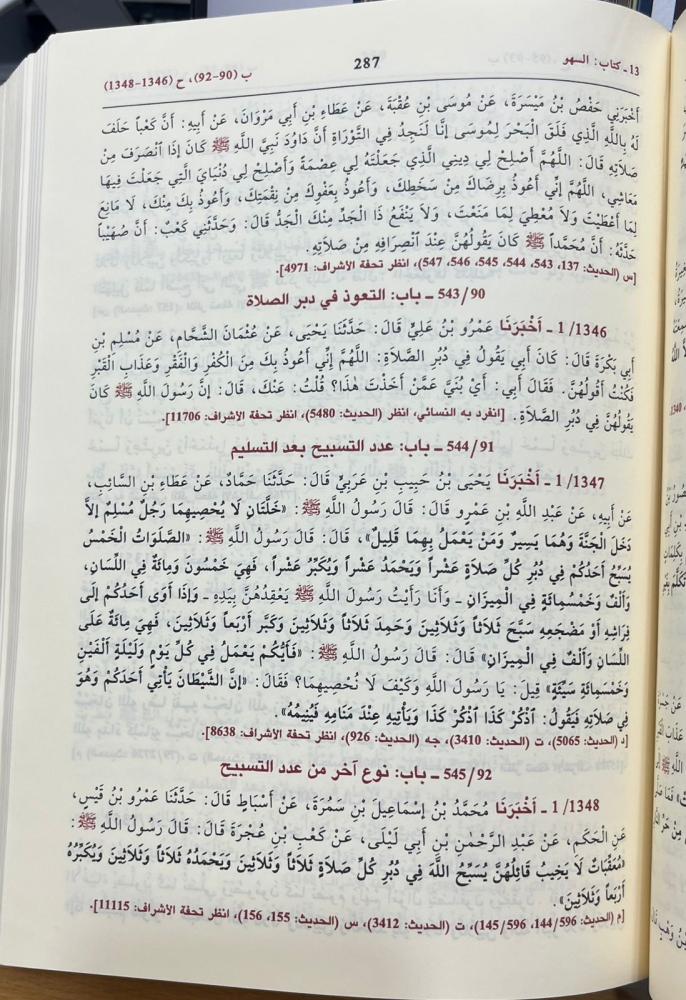 13 ـ كتاب: السهو
287
ب (90-92)، ح (1346-1348)
أَخْبَرَنِي حَفْصُ بْنُ مَيْسَرَةَ، عَنْ مُوسَى بْنِ عُقْبَةَ، عَنْ عَطَاءِ بْنِ أَبِي مَرْوَانَ، عَنْ أَبِيهِ: أَنَّ كَعْباً حَلَفَ
لَهُ بِاللَّهِ الَّذِي فَلَقَ الْبَحْرَ لِمُوسَى إِنَّا لَنَجِدُ فِي التَّوْرَاةِ أَنَّ دَاوُدَ نَبِيَّ اللَّهِ ﷺ كَانَ إِذَا انْصَرَفَ مِنْ
صَلَاتِهِ قَالَ: اللَّهُمَّ أَصْلِحْ لِي دِينِي الَّذِي جَعَلْتَهُ لِي عِصْمَةً وَأَصْلِحْ لِي دُنْيَايَ الَّتِي جَعَلْتَ فِيهَا
مَعَاشِي، اللَّهُمَّ إِنِّي أَعُوذُ بِرِضَاكَ مِنْ سَخَطِكَ، وَأَعُوذُ بِعَفْوِكَ مِنْ نِقْمَتِكَ، وَأَعُوذُ بِكَ مِنْكَ، لَا مَانِعَ
لِمَا أَعْطَيْتَ وَلَا مُعْطِيَ لِمَا مَنَعْتَ، وَلَا يَنْفَعُ ذَا الْجَدِّ مِنْكَ الْجَدُّ قَالَ: وَحَدَّثَنِي كَعْبٌ: أَنَّ صُهَيْباً
حَدَّثَهُ: أَنَّ مُحَمَّداً ﷺ كَانَ يَقُولُهُنَّ عِنْدَ انْصِرَافِهِ مِنْ صَلَاتِهِ.
[س (الحديث: 137، 543، 544، 545، 546، 547)، انظر تحفة الأشراف: 4971].
543/90 ـ باب: التعوذ في دبر الصلاة
1/1346 ـ أَخْبَرَنَا عَمْرُو بْنُ عَلِيٍّ قَالَ: حَدَّثَنَا يَحْيَى، عَنْ عُثْمَانَ الشَّحَّامِ، عَنْ مُسْلِمِ بْنِ
أَبِي بَكْرَةَ قَالَ: كَانَ أَبِي يَقُولُ فِي دُبُرِ الصَّلَاةِ: اللَّهُمَّ إِنِّي أَعُوذُ بِكَ مِنَ الْكُفْرِ وَالْفَقْرِ وَعَذَابِ الْقَبْرِ
فَكُنْتُ أَقُولُهُنَّ. فَقَالَ أَبِي: أَيْ بُنَيَّ عَمَّنْ أَخَذْتَ هٰذَا؟ قُلْتُ: عَنْكَ، قَالَ: إِنَّ رَسُولَ اللَّهِ ﷺ كَانَ
يَقُولُهُنَّ فِي دُبُرِ الصَّلَاةِ. [انفرد به النسائي، انظر (الحديث: 5480)، انظر تحفة الأشراف: 11706].
544/91 ـ باب: عدد التسبيح بعد التسليم
1/1347 ـ أَخْبَرَنَا يَحْيَى بْنُ حَبِيبِ بْنِ عَرَبِيٍّ قَالَ: حَدَّثَنَا حَمَّادٌ، عَنْ عَطَاءِ بْنِ السَّائِبِ،
عَنْ أَبِيهِ، عَنْ عَبْدِ اللَّهِ بْنِ عَمْرٍو قَالَ: قَالَ رَسُولُ اللَّهِ ﷺ: «خَلَّتَانِ لَا يُحْصِيهِمَا رَجُلٌ مُسْلِمٌ إِلَّا
دَخَلَ الْجَنَّةَ وَهُمَا يَسِيرٌ وَمَنْ يَعْمَلُ بِهِمَا قَلِيلٌ»، قَالَ: قَالَ رَسُولُ اللَّهِ ﷺ: «الصَّلَوَاتُ الْخَمْسُ
يُسَبِّحُ أَحَدُكُمْ فِي دُبُرِ كُلِّ صَلَاةٍ عَشْراً وَيَحْمَدُ عَشْراً وَيُكَبِّرُ عَشْراً، فَهِيَ خَمْسُونَ وَمِائَةٌ فِي اللِّسَانِ،
وَأَلْفٌ وَخَمْسُمِائَةٍ فِي الْمِيزَانِ ـ وَأَنَا رَأَيْتُ رَسُولَ اللَّهِ ﷺ يَعْقِدُهُنَّ بِيَدِهِ ـ وَإِذَا أَوَى أَحَدُكُمْ إِلَى
فِرَاشِهِ أَوْ مَضْجَعِهِ سَبَّحَ ثَلَاثاً وَثَلَاثِينَ وَحَمِدَ ثَلَاثاً وَثَلَاثِينَ وَكَبَّرَ أَرْبَعاً وَثَلَاثِينَ، فَهِيَ مِائَةٌ عَلَى
اللِّسَانِ وَأَلْفٌ فِي الْمِيزَانِ» قَالَ: قَالَ رَسُولُ اللَّهِ ﷺ: «فَأَيُّكُمْ يَعْمَلُ فِي كُلِّ يَوْمٍ وَلَيْلَةٍ أَلْفَيْنِ
وَخَمْسَمِائَةِ سَيِّئَةٍ» قِيلَ: يَا رَسُولَ اللَّهِ وَكَيْفَ لَا نُحْصِيهِمَا؟ فَقَالَ: «إِنَّ الشَّيْطَانَ يَأْتِي أَحَدَكُمْ وَهُوَ
فِي صَلَاتِهِ فَيَقُولُ: اذْكُرْ كَذَا اذْكُرْ كَذَا وَيَأْتِيهِ عِنْدَ مَنَامِهِ فَيُنِيمُهُ».
[د (الحديث: 5065)، ت (الحديث: 3410)، جه (الحديث: 926)، انظر تحفة الأشراف: 8638].
545/92 ـ باب: نوع آخر من عدد التسبيح
1/1348 ـ أَخْبَرَنَا مُحَمَّدُ بْنُ إِسْمَاعِيلَ بْنِ سَمُرَةَ، عَنْ أَسْبَاطٍ قَالَ: حَدَّثَنَا عَمْرُو بْنُ قَيْسٍ،
عَنِ الْحَكَمِ، عَنْ عَبْدِ الرَّحْمٰنِ بْنِ أَبِي لَيْلَى، عَنْ كَعْبِ بْنِ عُجْرَةَ قَالَ: قَالَ رَسُولُ اللَّهِ ﷺ:
«مُعَقِّبَاتٌ لَا يَخِيبُ قَائِلُهُنَّ يُسَبِّحُ اللَّهَ فِي دُبُرِ كُلِّ صَلَاةٍ ثَلَاثاً وَثَلَاثِينَ وَيَحْمَدُهُ ثَلَاثاً وَثَلَاثِينَ وَيُكَبِّرُهُ
أَرْبَعاً وَثَلَاثِينَ».
[م (الحديث: 144/596، 145/596)، ت (الحديث: 3412)، س (الحديث: 155، 156)، انظر تحفة الأشراف: 11115].